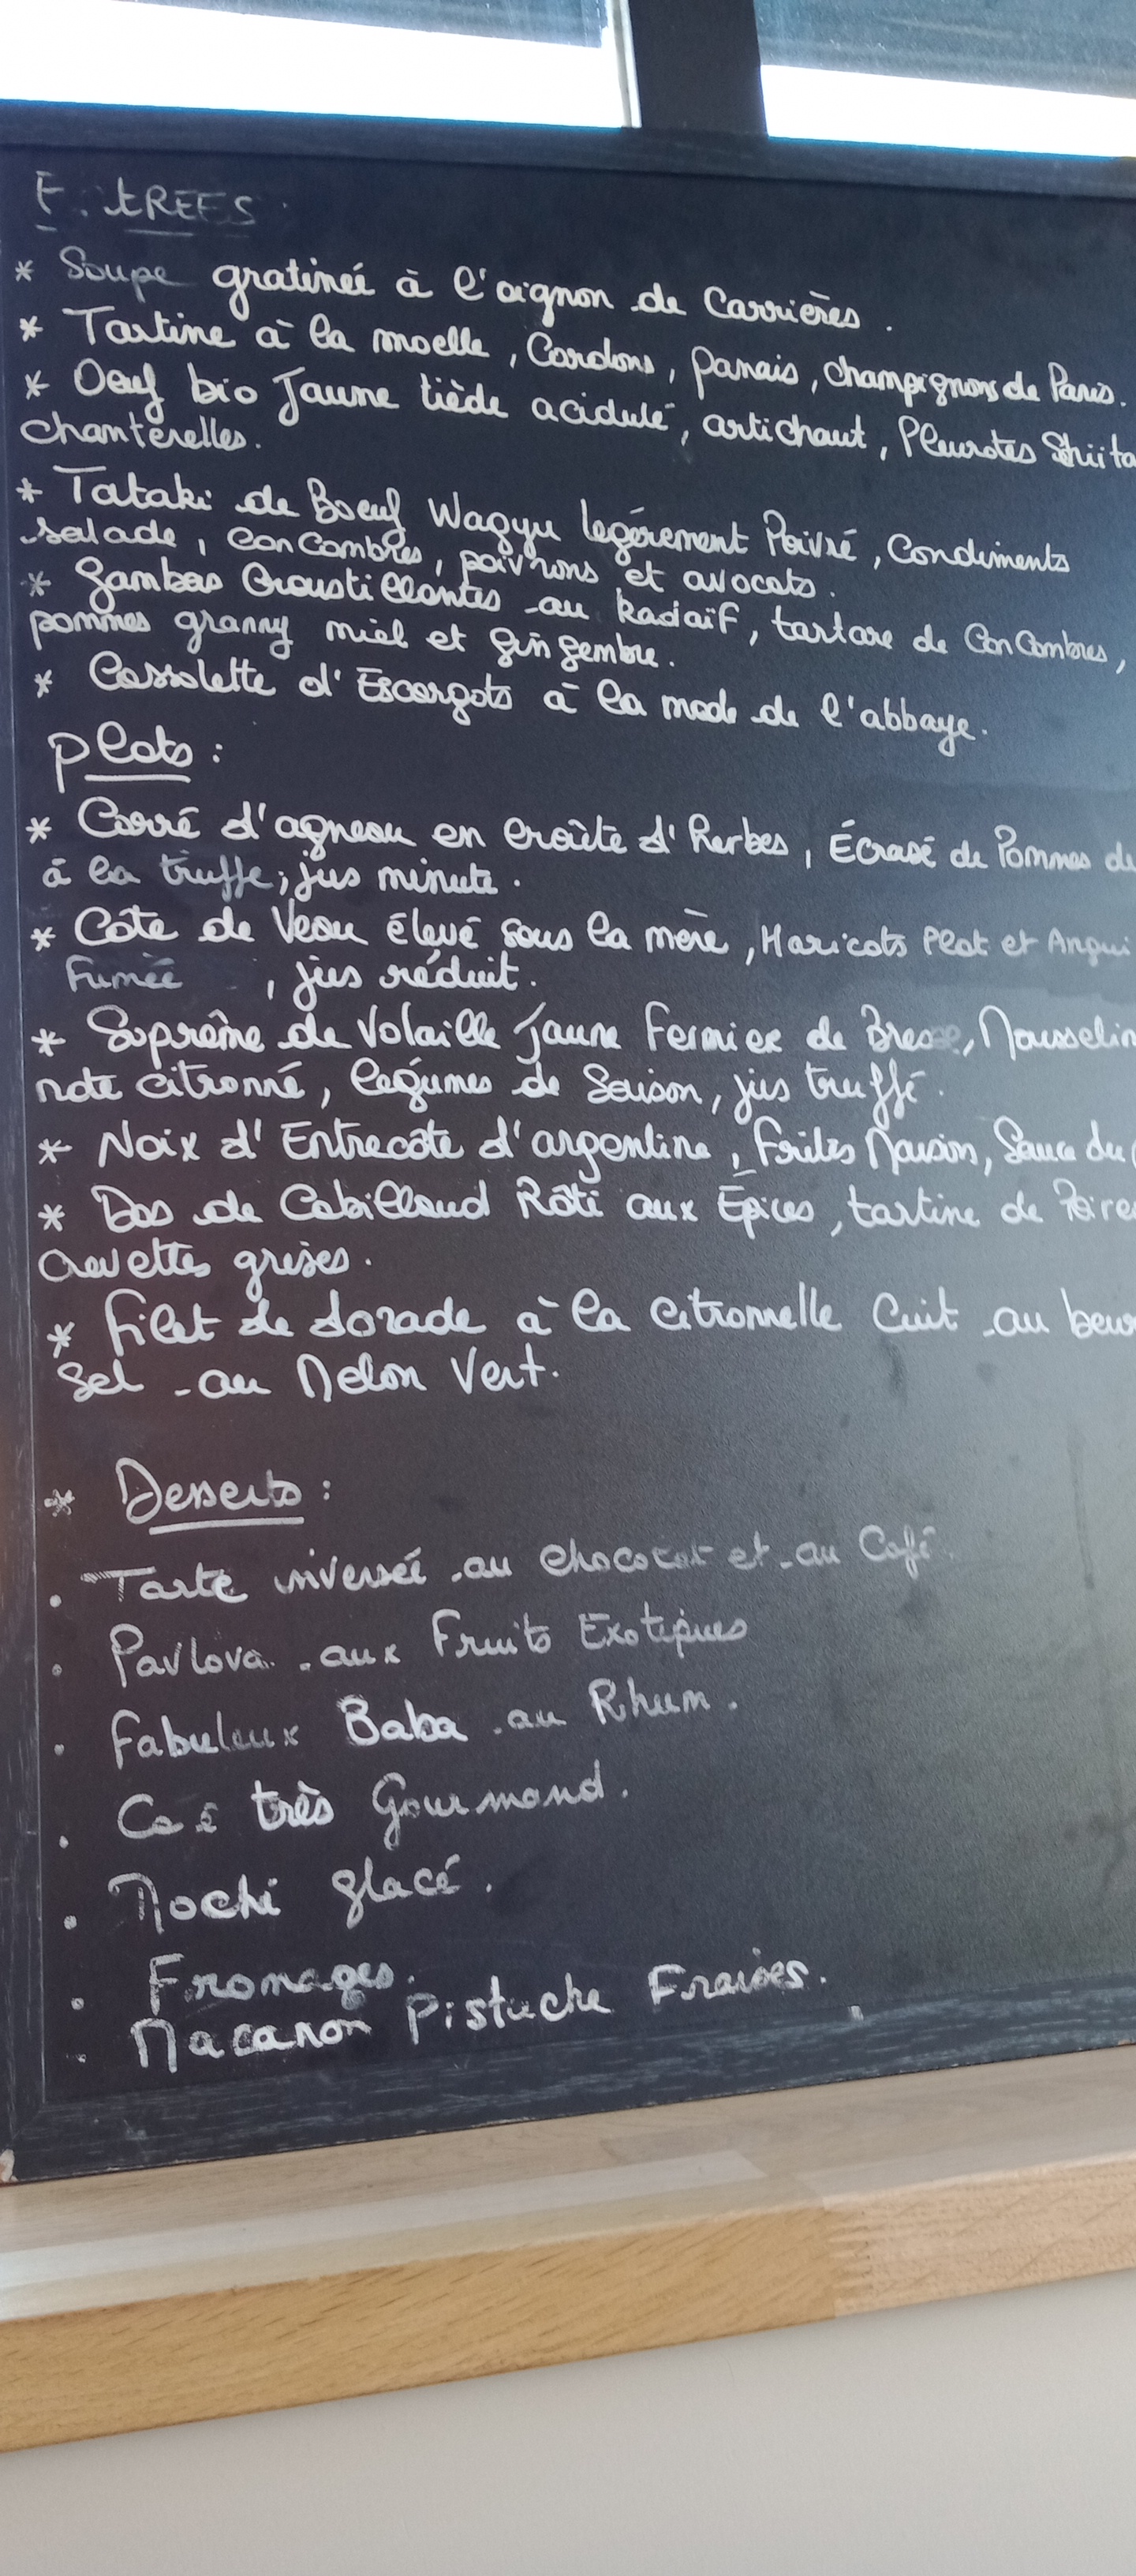 E.TREES
* Soupe gratineé à l'oignon de Carrières.
* Tartine à la moelle, Cardons, panais, champignons de Paris.
* Oeuf bio Jaune tiède acidulé, artichaut, Pleurotes Shiita
chanterelles.
* Tataki de Boeuf Wagyu legérement Poivré, Condiments
salade, conCombres, poivrons et avocats.
* Gambas Croustillantes au kadaïf, tartare de ConCombres,
pommes granny miel et gingembre.
* Cassolette d'Escargots à la mode de l'abbaye.
plats:
* Carré d'agneau en croûte d'herbes, Écrasé de Pommes de
à la truffe, jus minute.
* Côte de Veau élevé sous la mère, Haricots Plat et Angui
Fumée , jus réduit.
* Suprême de Volaille Jaune Fermier de Bresse, Mousselin
note citronné, legumes de Saison, jus truffé.
* Noix d'Entrecôte d'argentine, Frites Maison, Sauce du
* Dos de Cabillaud Rôti aux Épices, tartine de Poire
Crevettes grises.
* Filet de dorade à la citronnelle Cuit au beur
Sel au Melon Vert.
* Desserts:
. Tarte inverseé au chocolat et au Café.
. Pavlova aux Fruits Exotiques
. Fabuleux Baba au Rhum.
. très Gourmand.
. Mochi glacé.
. Fromages.
. Macaron Pistache Fraises.